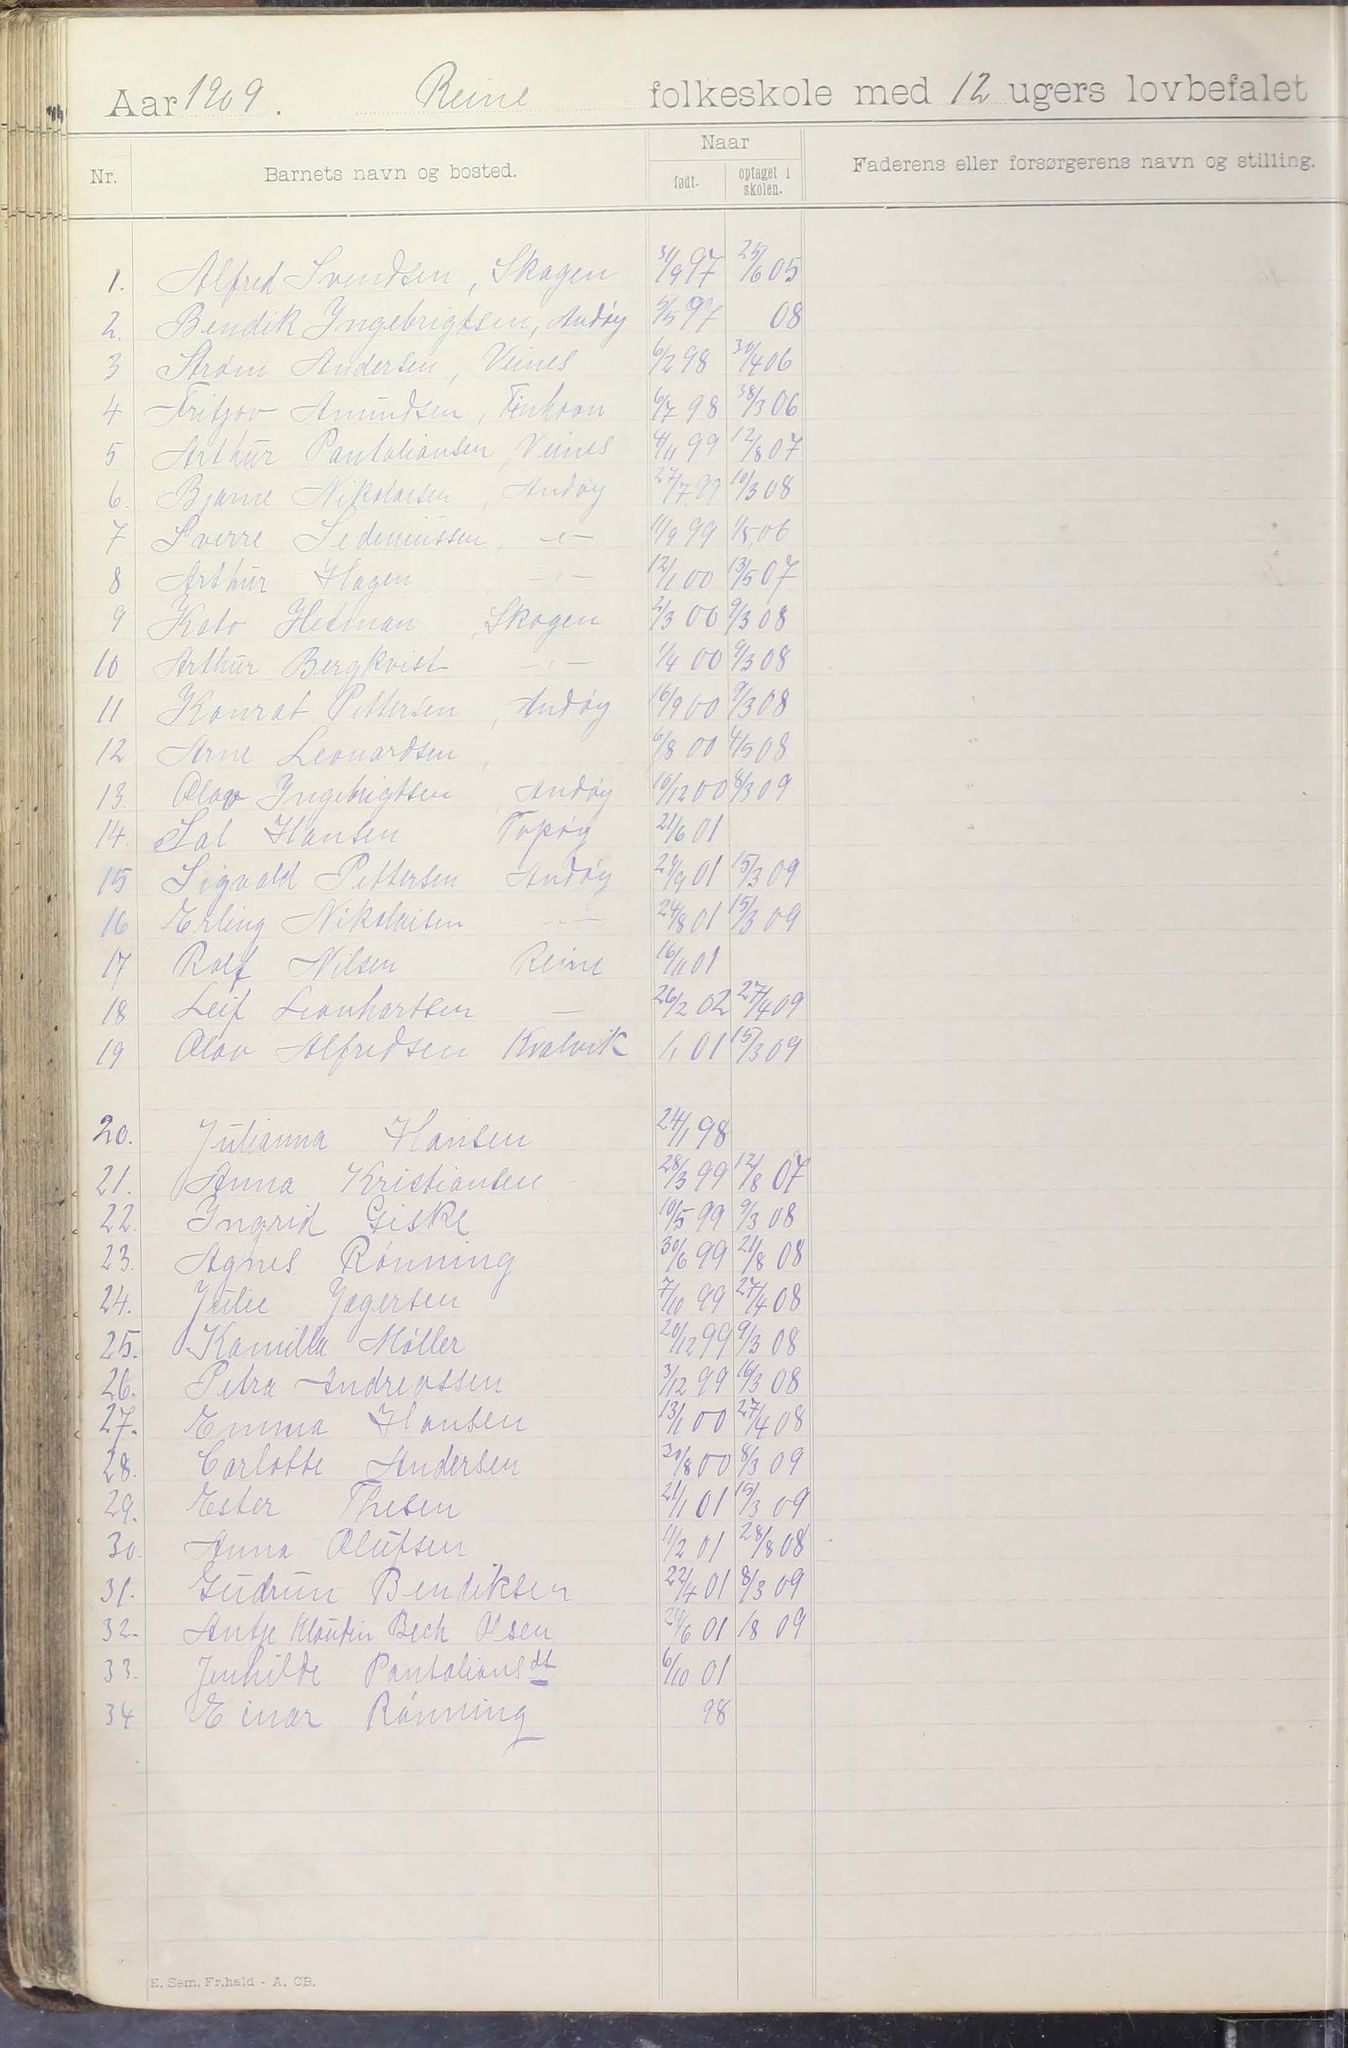 Aar 1909. Reine folkeskole med 12 ugers lovbefalet
Nr. Barnets navn og bosted. Naar født. optaget i skolen. Faderens eller forsørgerens navn og stilling.
1. Alfred Svendsen, Skagen 31/9 97 25/6 05
2. Bendik Ingebrigtsen, Andøy 5/5 97 08
3 Strøm Andersen, Veines 6/2 98 30/4 06
4 Fritjov Amundsen, 6/7 98 38/3 06
5 Arthur Pantaliansen, Veines 4/11 99 12/8 07
6. Bjarne Nikolaisen, Andøy 27/7 99 10/3 08
7 Sverre Sedeniussen, -"- 11/9 99 1/8 06
8 Arthur Hagen -"- 12/1 00 13/5 07
9 Kato Hetman, Skagen 2/3 00 9/3 08
10 Arthur Bergkvist -"- 1/4 00 9/3 08
11 Konrat Pettersen, Andøy 16/9 00 9/3 08
12 Arne Leonardsen, 6/8 00 4/5 08
13 Olav Ingebrigtsen, Andøy 10/12 00 8/3 09
14. Sal Hansen Topøy 21/6 01
15 Sigvald Pettersen Andøy 29/9 01 15/3 09
16 Erling Nikolaisen -"- 24/8 01 15/3 09
17 Rolf Nilsen Reine 16/11 01
18 Leif Leonhartsen — 26/2 02 27/4 09
19 Olav Alfredsen Kvalvik /1 01 15/3 09
20. Julianna Hansen 24/1 98
21. Anna Kristiansen 28/3 99 12/8 07
22. Ingrid Giske 10/5 99 9/3 08
23. Agnes Rønning 30/6 99 21/8 08
24. Julie Jægersen 7/10 99 27/4 08
25. Kamilla Møller 20/12 99 9/3 08
26. Petra Andreassen 3/12 99 16/3 08
27. Emma Hansen 13/1 00 27/4 08
28. Carlotte Andersen 20/8 00 8/3 09
29. Ester Thesen 21/1 01 15/3 09
30. Anna Olufsen 11/2 01 28/8 08
31. Gudrun Bendiksen 22/4 01 8/3 09
32. Antje Klaudin Bech Olsen 20/6 01 /8 09
33. Jenhilde Pantaliansdt 6/10 01
34 Einar Rønning 98
E. Sem, Fr.hald - A. CB.